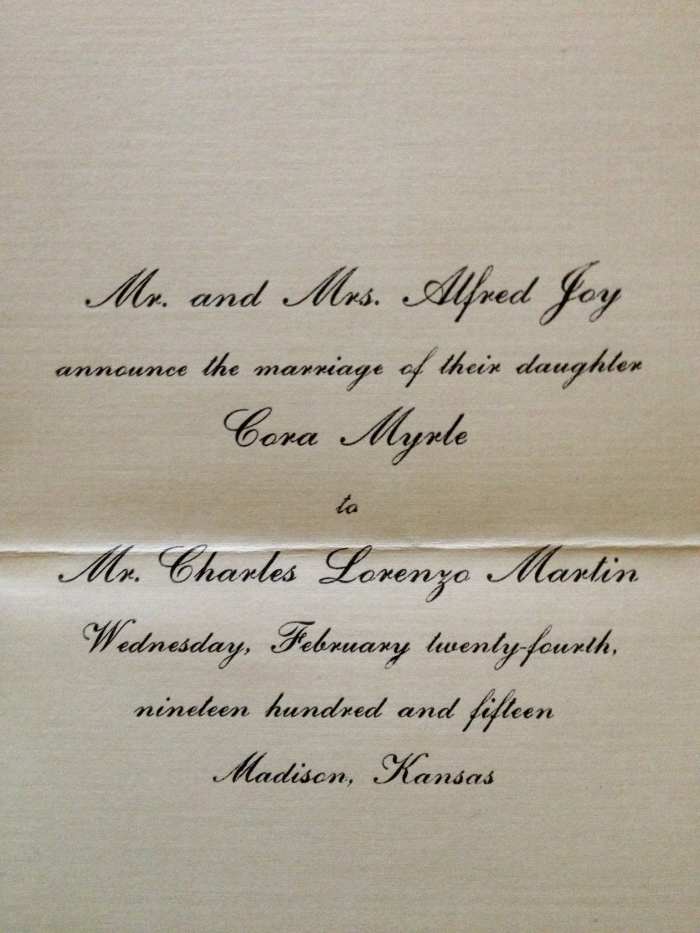 Mr. and Mrs. Alfred Joy
announce the marriage of their daughter
Cora Myrle
to
Mr. Charles Lorenzo Martin
Wednesday, February twenty-fourth,
nineteen hundred and fifteen
Madison, Kansas